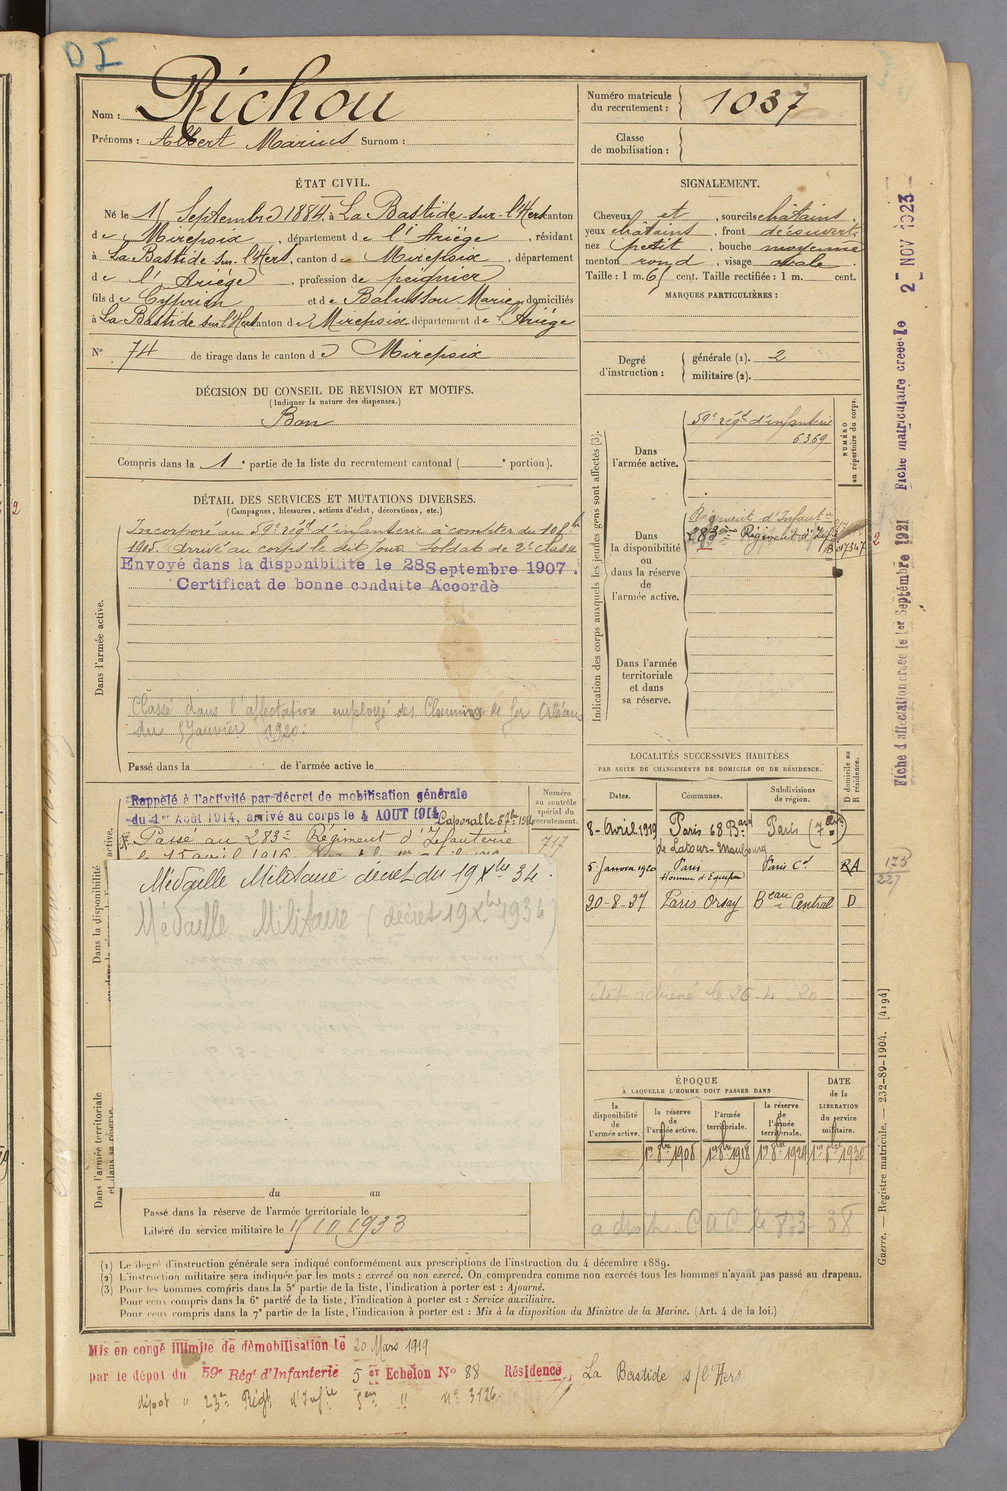 DI
Nom : Richou
Prénoms : Albert Marius Surnom :
Numéro matricule du recrutement : 1037
Classe de mobilisation :
ÉTAT CIVIL.
Né le 15 Septembre 1884, à La Bastide-sur-l'Hers canton
de Mirepoix, département de l'Ariège, résidant
à La Bastide sur l'Hers, canton de Mirepoix, département
de l'Ariège, profession de peignier
fils de Cyprien et de Balussou Marie, domiciliés
à La Bastide sur l'Hers canton de Mirepoix département de l'Ariège
N° 74 de tirage dans le canton de Mirepoix
SIGNALEMENT.
Cheveux et, sourcils châtains.
yeux châtains, front découvert
nez petit, bouche moyenne
menton rond, visage ovale.
Taille : 1 m. 65 cent. Taille rectifiée : 1 m. cent.
MARQUES PARTICULIÈRES :
Degré d'instruction :
générale (1). 2
militaire (2).
DÉCISION DU CONSEIL DE REVISION ET MOTIFS.
(Indiquer la nature des dispenses.)
Bon
Compris dans la 1e partie de la liste du recrutement cantonal ( e portion).
DÉTAIL DES SERVICES ET MUTATIONS DIVERSES.
(Campagnes, blessures, actions d'éclat, décorations, etc.)
Dans l'armée active.
Incorporé au 59e régt d'infanterie à compter du 10 8bre
1905. Arrivé au corps le dit jour. Soldat de 2e classe
Envoyé dans la disponibilité le 28 Septembre 1907.
Certificat de bonne conduite Accordé
Classé dans l'affectation employé des Chemins de fer Orléans
du 5 Janvier 1920.
Passé dans la de l'armée active le
Indication des corps auxquels les jeunes gens sont affectés (3).
NUMÉRO au répertoire du corps.
Dans l'armée active.
59e régt d'infanterie
6369
Dans la disponibilité ou dans la réserve de l'armée active.
Régiment d'Infant
283eme Régiment d'Inf
Dans l'armée territoriale et dans sa réserve.
Dans la disponibilité
Numéro au contrôle spécial du recrutement.
Rappelé à l'activité par décret de mobilisation générale
du 1er Août 1914, arrivé au corps le 4 AOUT 1914 Caporal le
Passé au 283e Régiment d'Infanterie
717
le 15 avril 1916
Médaille Militaire décret du 19 Xbre 34.
Médaille Militaire (décret 19 Xbre 1934)
Dans l'armée territoriale et dans sa réserve
du au
Passé dans la réserve de l'armée territoriale le
Libéré du service militaire le 15/10/1933
LOCALITÉS SUCCESSIVES HABITÉES
PAR SUITE DE CHANGEMENTS DE DOMICILE OU DE RÉSIDENCE.
Dates. Communes. Subdivisions de région. D domicile ou R résidence.
8-Avril 1919 Paris 68 Bard de Latour-Maubourg Paris (7e arr)
5 Janvier 1920 Paris Homme d'Equipe Paris Cal RA
20-8-27 Paris Orsay Beau Central D
état adressé le 26 4 20
ÉPOQUE
À LAQUELLE L'HOMME DOIT PASSER DANS
la disponibilité de l'armée active. la réserve de l'armée active. l'armée territoriale. la réserve de l'armée territoriale. DATE de la LIBÉRATION du service militaire.
1er 8bre 1908 1er 8bre 1918 1er 8bre 1924 1er 8bre 1930
CAC le 8-3-38
(1) Le degré d'instruction générale sera indiqué conformément aux prescriptions de l'instruction du 4 décembre 1889.
(2) L'instruction militaire sera indiquée par les mots : exercé ou non exercé. On comprendra comme non exercés tous les hommes n'ayant pas passé au drapeau.
(3) Pour les hommes compris dans la 5e partie de la liste, l'indication à porter est : Ajourné.
Pour ceux compris dans la 6e partie de la liste, l'indication à porter est : Service auxiliaire.
Pour ceux compris dans la 7e partie de la liste, l'indication à porter est : Mis à la disposition du Ministre de la Marine. (Art. 4 de la loi.)
Mis en congé illimité de démobilisation le 20 Mars 1919
par le dépot du 59e Rég' d'Infanterie 5 er Echelon N° 88 Résidence, La Bastide s/l'Hers
dépot " 23e Régt d'Infrie 5en " n° 3126
Fiche d'affectation créée le 1er Septembre 1921
Fiche matriculaire créée le 2 NOV 1923
2
125
227
Guerre. — Registre matricule. — 232-89-1904. [4194]